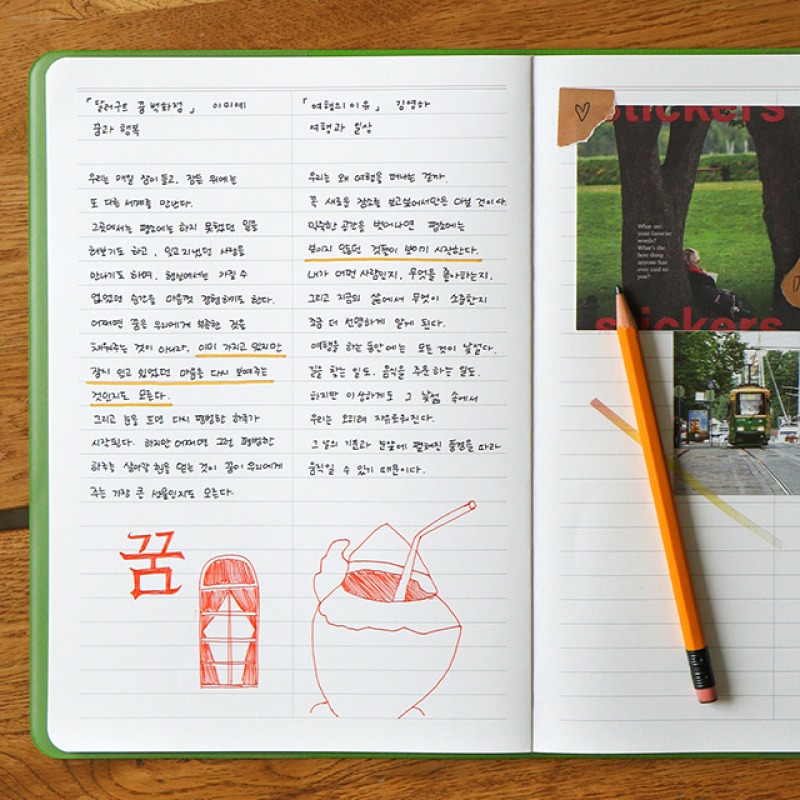 「달러구트 꿈 백화점」 이미예
꿈과 행복
우리는 매일 잠이 들고, 잠든 뒤에는
또 다른 세계를 만난다.
그곳에서는 평소에는 하지 못했던 일을
해보기도 하고, 잊고 지냈던 사람을
만나기도 하며, 현실에서는 가질 수
없었던 순간을 마음껏 경험해보기도 한다.
어쩌면 꿈은 우리에게 부족한 것을
채워주는 것이 아니라, 이미 가지고 있지만
잠시 잊고 있었던 마음을 다시 보여주는
것인지도 모른다.
그리고 눈을 뜨면 다시 평범한 하루가
시작된다. 하지만 어쩌면 그런 평범한
하루를 살아갈 힘을 얻는 것이 꿈이 우리에게
주는 가장 큰 선물인지도 모른다.
꿈
「여행의 이유」 김영하
여행과 일상
우리는 왜 여행을 떠나는 걸까.
꼭 새로운 장소를 보고싶어서만은 아닐 것이다.
익숙한 공간을 벗어나면 평소에는
보이지 않던 것들이 보이기 시작한다.
내가 어떤 사람인지, 무엇을 좋아하는지,
그리고 지금의 삶에서 무엇이 소중한지
조금 더 선명하게 알게 된다.
여행을 하는 동안에는 모든 것이 낯설다.
길을 찾는 일도, 음식을 주문하는 일도.
하지만 이상하게도 그 낯섦 속에서
우리는 오히려 자유로워진다.
그 날의 기분과 눈앞에 펼쳐진 풍경을 따라
움직일 수 있기 때문이다.
stickers
What are
your favorite
words?
What's the
best thing
anyone has
ever said to
you?
stickers